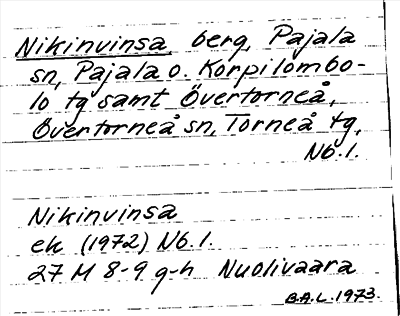 Nikinvinsa, berg, Pajala
sn, Pajala o. Korpilombo-
lo tg samt Övertorneå,
Övertorneå sn, Torneå tg,
Nb.l.
Nikinvinsa
ek (1972) Nb.l.
27 M 8-9 g-h Nuolivaara
B.A.L. 1973.